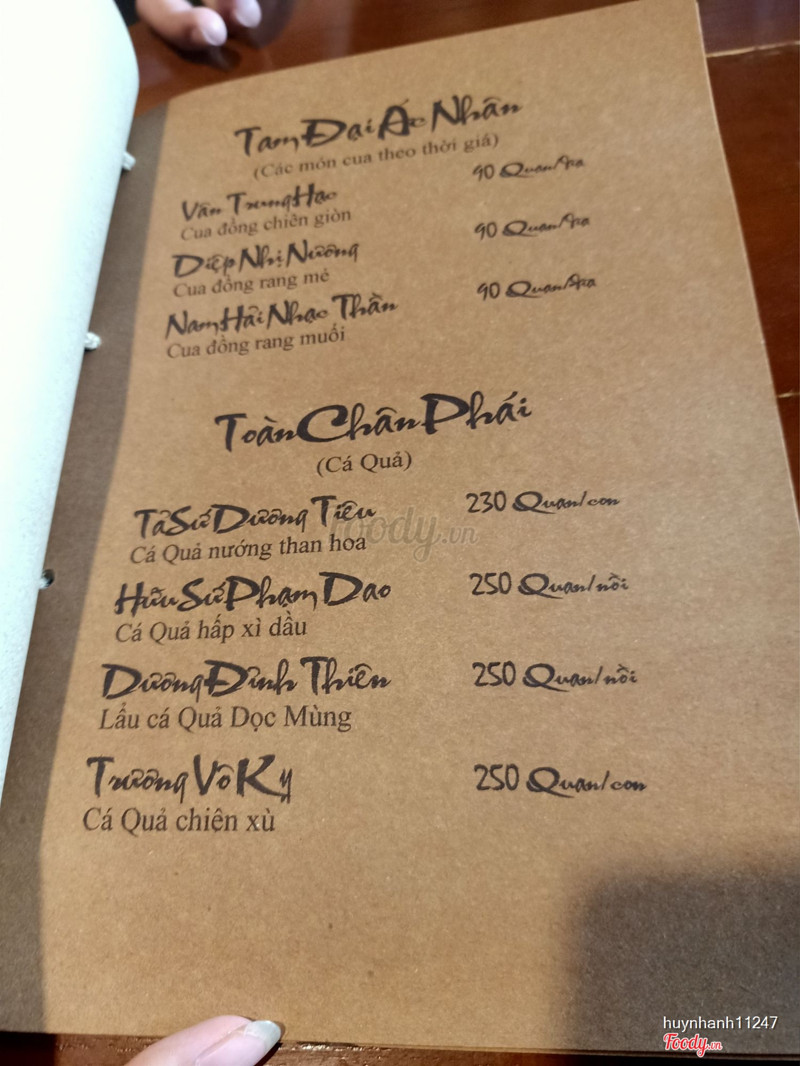 Tam Đại Ác Nhân
(Các món cua theo thời giá)
Vân Trung Hạc 90 Quan/đĩa
Cua đồng chiên giòn
Diệp Nhị Nương 90 Quan/đĩa
Cua đồng rang mẻ
Nam Hải Nhạc Thần 90 Quan/đĩa
Cua đồng rang muối
Toàn Chân Phái
(Cá Quả)
Tả Sứ Dương Tiêu 230 Quan/con
Cá Quả nướng than hoa
Hữu Sứ Phạm Dao 250 Quan/nồi
Cá Quả hấp xì dầu
Dương Đỉnh Thiên 250 Quan/nồi
Lẩu cá Quả Dọc Mùng
Trương Vô Kỵ 250 Quan/con
Cá Quả chiên xù
foody.vn
huynhanh11247
Foody.vn